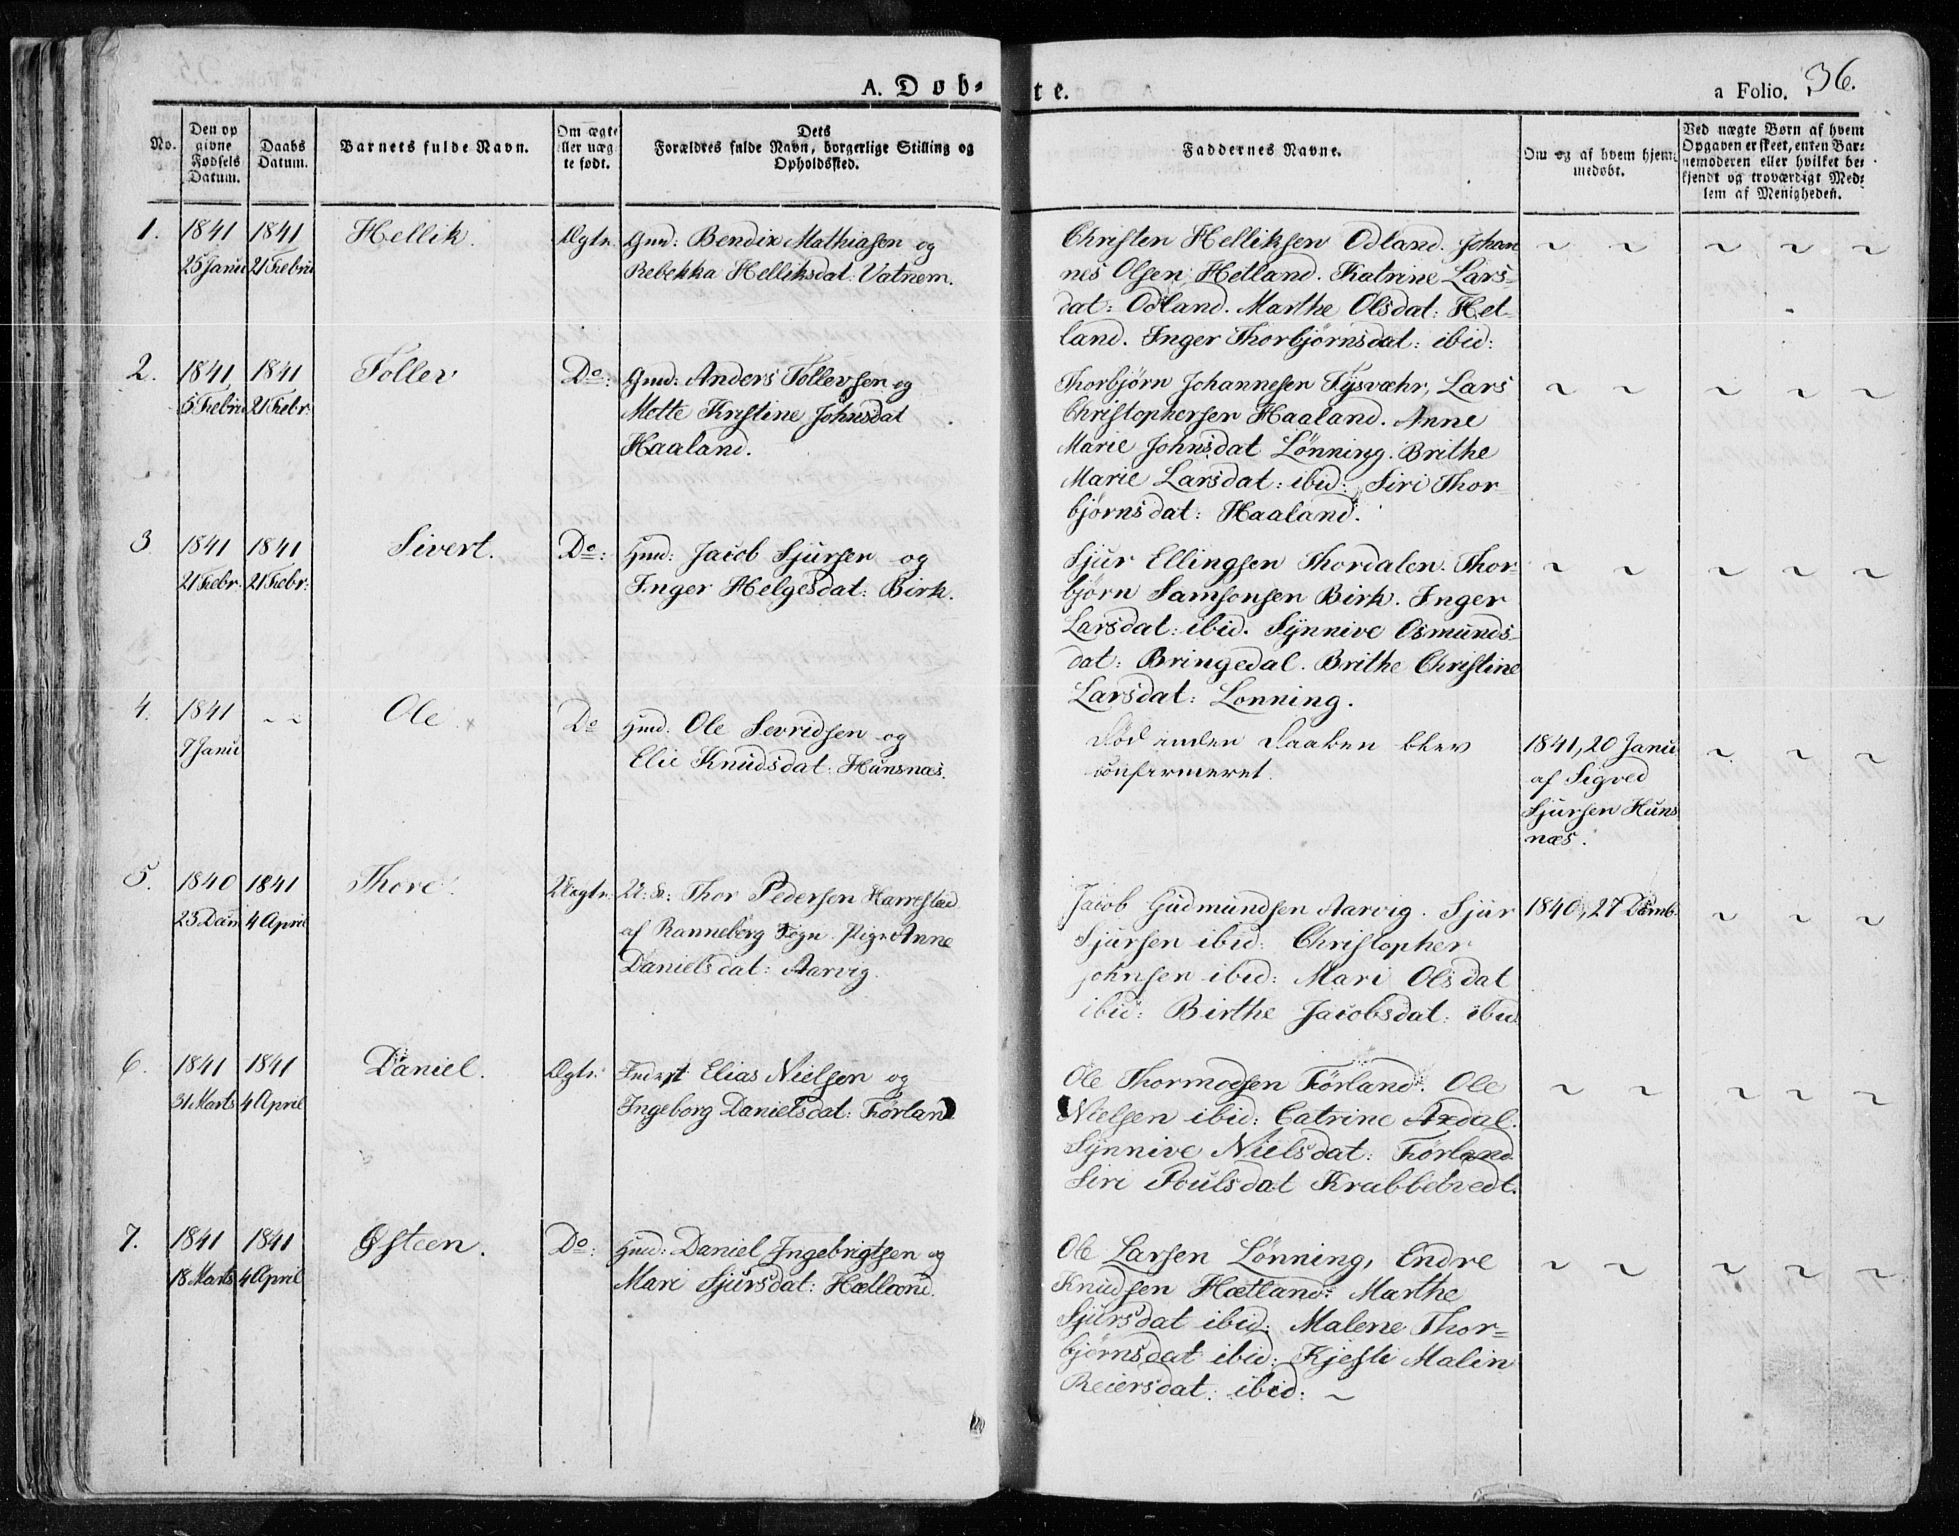 A. Døb-
te.
a Folio. 36.
No.
Den op
givne
Fødsels
Datum.
Daabs
Datum.
Barnets fulde Navn.
Om ægte
eller uæg
te født.
Dets
Forældres fulde Navn, borgerlige Stilling og
Opholdssted.
Faddernes Navne.
Om og af hvem hjem-
medøbt.
Ved uægte Børn af hvem
Opgaven er skeet, enten Bar-
nemoderen eller hvilket be-
kjendt og troværdigt Med-
lem af Menigheden.
1.
1841
25 Janu
1841
21 Febru
Hellik.
Ægte.
Gmd: Bendix Mathiasen og
Rebekka Helliksdat: Vatnem.
Christen Helliksen Odland. Johan
nes Olsen Hetland. Katrine Lars-
dat: Odland. Marthe Olsdat: Het-
land. Inger Thorbjørnsdat: ibid:
~ ~ ~ ~ ~
2.
1841
5 Febru
1841
21 Febr.
Tollev
Do:
Gmd: Anders Tollevsen og
Motte Kristine Johnsdat
Haaland.
Thorbjørn Johannesen Tysvæhr, Lars
Christophersen Haaland. Anne
Marie Johnsdat Lønning. Brithe
Marie Larsdat: ibid: Siri Thor-
bjørnsdat: Haaland.
~ ~ ~ ~ ~
3
1841
21 Febr.
1841
21 Febr:
Sivert.
Do:
Hmd: Jacob Sjursen og
Inger Helgesdat: Birk.
Sjur Ellingsen Thordalen. Thor-
bjørn Samsonsen Birk. Inger
Larsdat: ibid. Synnive Osmunds-
dat: Bringedal. Brithe Christine
Larsdat: Lonning.
~ ~ ~ ~ ~
4.
1841
7 Janu
~ ~
Ole.
Do
Hmd. Ole Sevridsen og
Elie Knudsdat: Hunsnæs.
Død inden Daaben blev
confirmeret.
1841, 20 Janu
af Sigved
Sjursen Huns
næs.
~ ~ ~
5.
1840
23 Dam
1841
4 April
Thore.
Uægte.
U: S: Thor Pedersen Harrestad
af Ranneberg Sogn. Pige Anne
Danielsdat: Aarvig.
Jacob Gudmundsen Aarvig. Sjur
Sjursen ibid: Christopher
Johnsen ibid: Mari Olsdat
ibid: Birthe Jacobsdat: ibid
1840, 27 Dcmb.
~ ~ ~
6.
1841
31 Marts
1841
4 April
Daniel.
Ægte.
Inderst Elias Nielsen og
Ingeborg Danielsdat: Førland
Ole Thormodsen Førland. Ole
Nielsen ibid: Catrine Axdal.
Synnive Nielsdat: Førland
Siri Poulsdat Krabbetvedt.
~ ~ ~ ~ ~
7.
1841
18 Marts
1841
4 April
Østeen.
Do:
Hmd: Daniel Ingebrigtsen og
Mari Sjursdat: Hætland.
Ole Larsen Lønning, Endre
Knudsen Hætland: Marthe
Sjursdat ibid: Malene Thor-
bjørnsdat ibid: Kjesti Malin
Reiersdat: ibid: ~
~ ~ ~ ~ ~